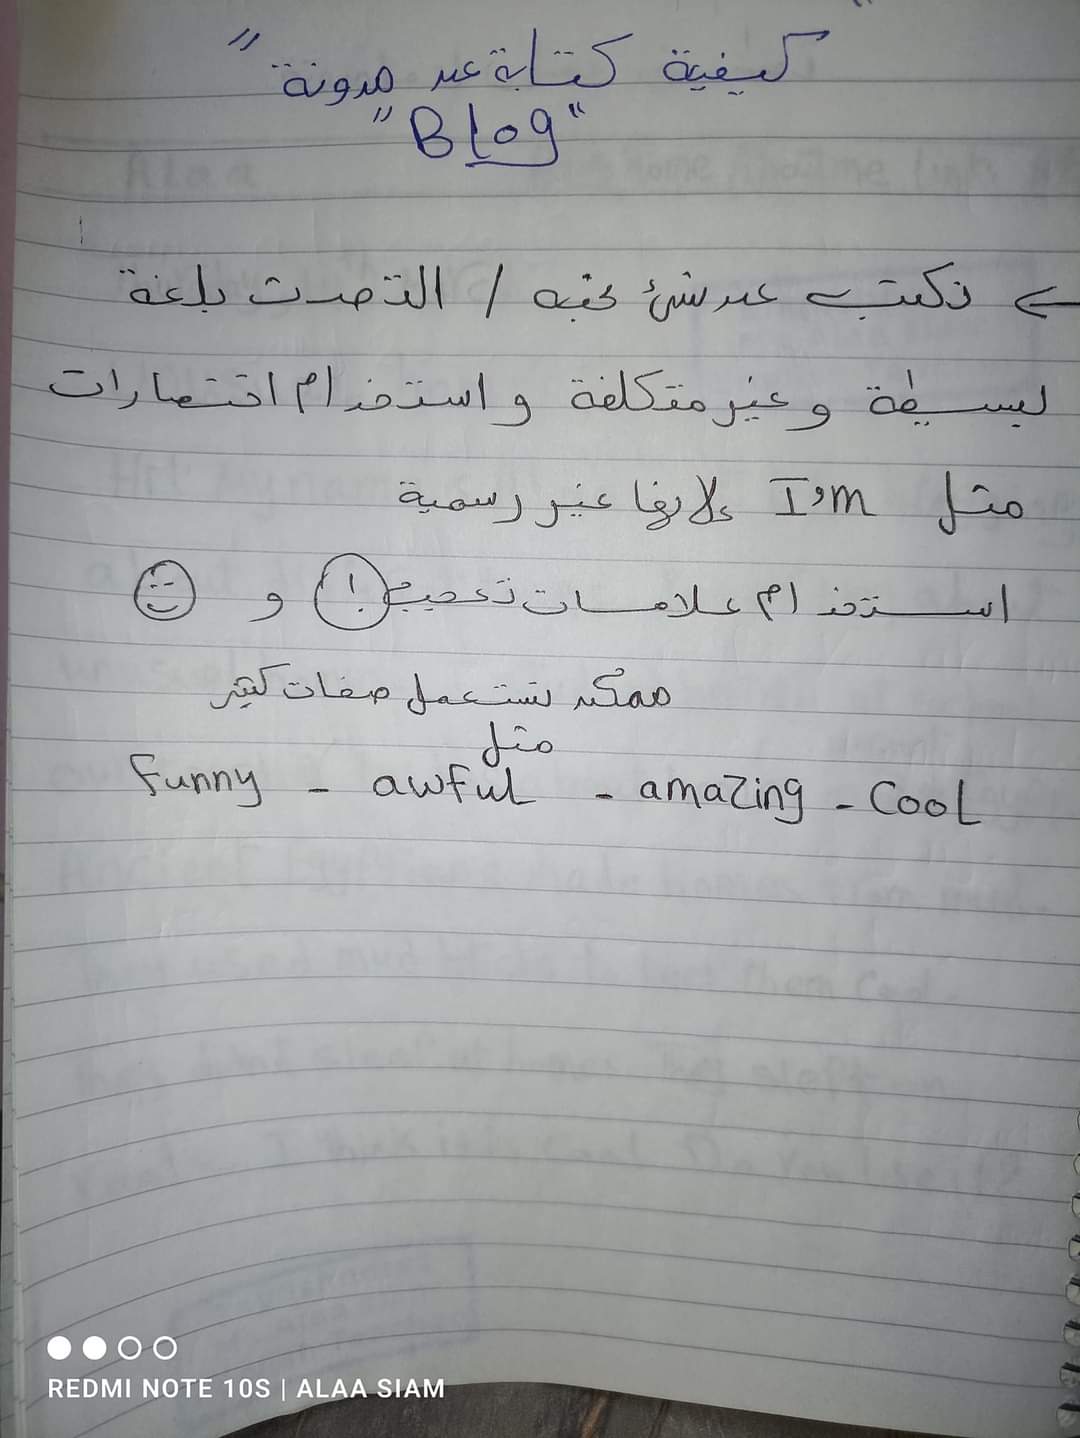 "كيفية كتابة عن مدونة"
"Blog"
نكتب عن شئ نحبه / التحدث بلغة
بسيطة و غير متكلفة و استخدام اختصارات
مثل I'm لانها غير رسمية
استخدام علامات تعجب ! و
ممكن نستعمل صفات كتير
مثل
Funny - awful - amazing - Cool
REDMI NOTE 10S | ALAA SIAM